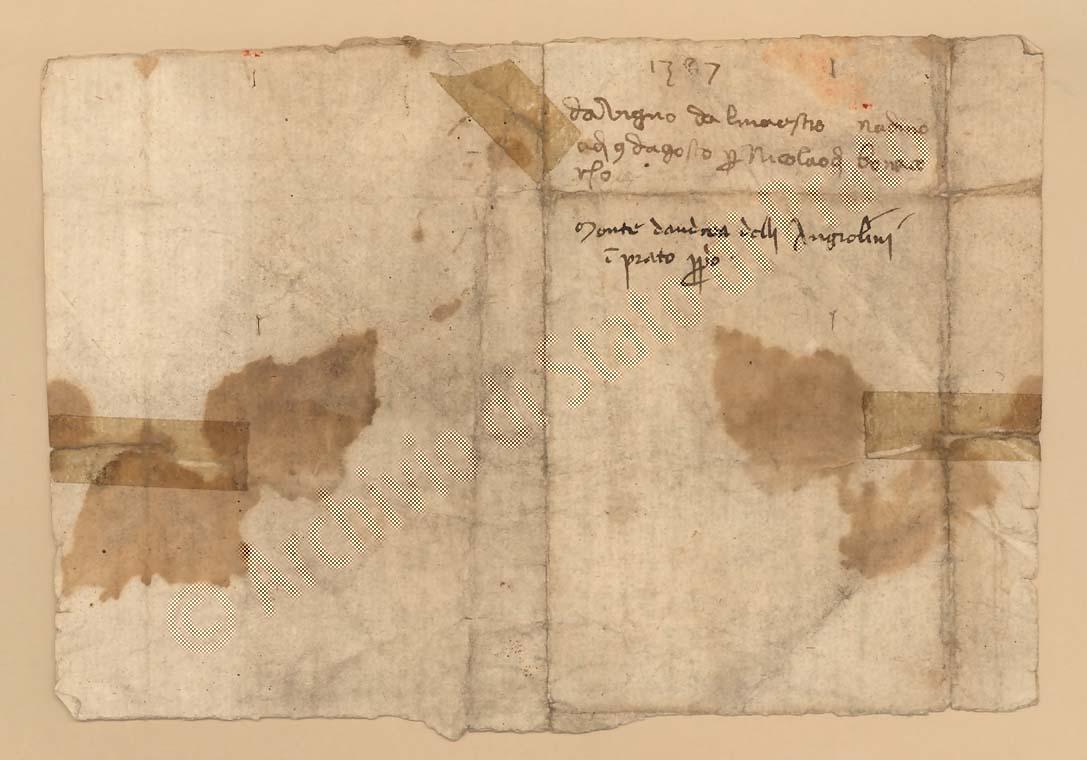 1387
da Vignō da lmaestro nadino
adj 9 dagosto p Nicolao di bonac
rso
Monte dandrea delli Angiolini
ī prato pp̄o
© Archivio di Stato di Prato